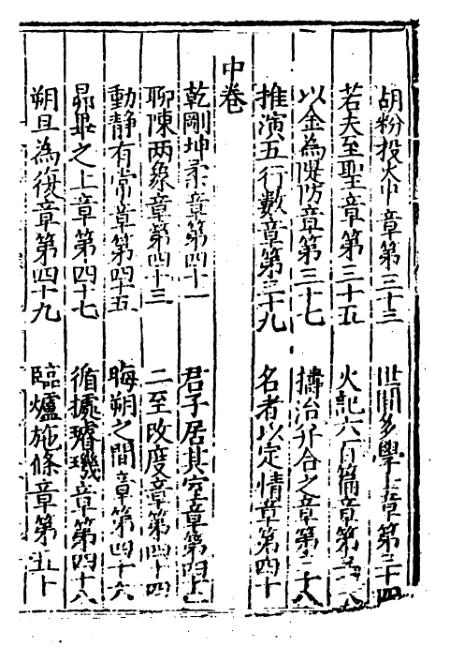 胡粉投火中章第三十三　世間多學士章第三十四
若夫至聖章第三十五　火記六百篇章第三十六
以金為隄防章第三十七　擣治并合之章第三十八
推演五行數章第三十九　名者以定情章第四十
中卷
乾剛坤柔章第四十一　君子居其室章第四十二
聊陳两象章第四十三　二至改度章第四十四
動静有常章第四十五　晦朔之間章第四十六
昴畢之上章第四十七　循據璿璣章第四十八
朔旦為復章第四十九　臨爐施條章第五十